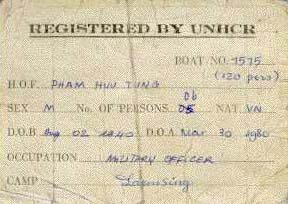 REGISTERED BY UNHCR
BOAT NO. 1575
(120 pers)
H.O.F. PHAM HUU TUNG
06
SEX M No. OF PERSONS 05 NAT. VN
D.O.B Aug 02 1940 D.O.A Mar 30 1980
OCCUPATION MILITARY OFFICER
CAMP Laemsing